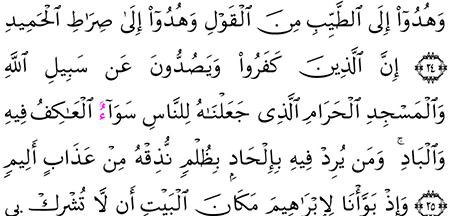 وَهُدُوٓا۟ إِلَى ٱلطَّيِّبِ مِنَ ٱلْقَوْلِ وَهُدُوٓا۟ إِلَىٰ صِرَٰطِ ٱلْحَمِيدِ
﴿٢٤﴾ إِنَّ ٱلَّذِينَ كَفَرُوا۟ وَيَصُدُّونَ عَن سَبِيلِ ٱللَّهِ
وَٱلْمَسْجِدِ ٱلْحَرَامِ ٱلَّذِى جَعَلْنَٰهُ لِلنَّاسِ سَوَآءً ٱلْعَٰكِفُ فِيهِ
وَٱلْبَادِ ۚ وَمَن يُرِدْ فِيهِ بِإِلْحَادٍۭ بِظُلْمٍ نُّذِقْهُ مِنْ عَذَابٍ أَلِيمٍ
﴿٢٥﴾ وَإِذْ بَوَّأْنَا لِإِبْرَٰهِيمَ مَكَانَ ٱلْبَيْتِ أَن لَّا تُشْرِكْ بِى